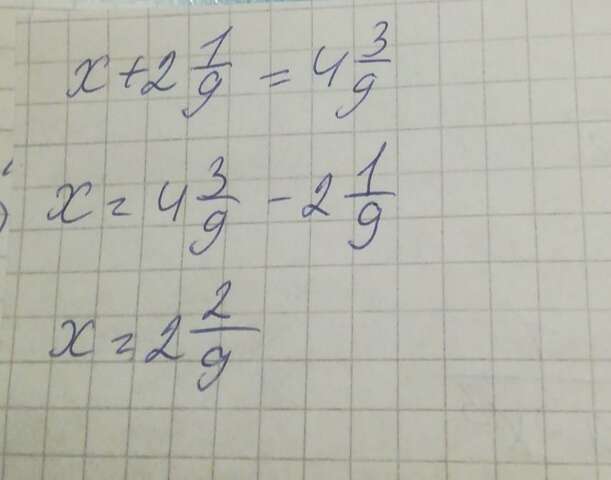 x + 2 1/9 = 4 3/9
x = 4 3/9 - 2 1/9
x = 2 2/9